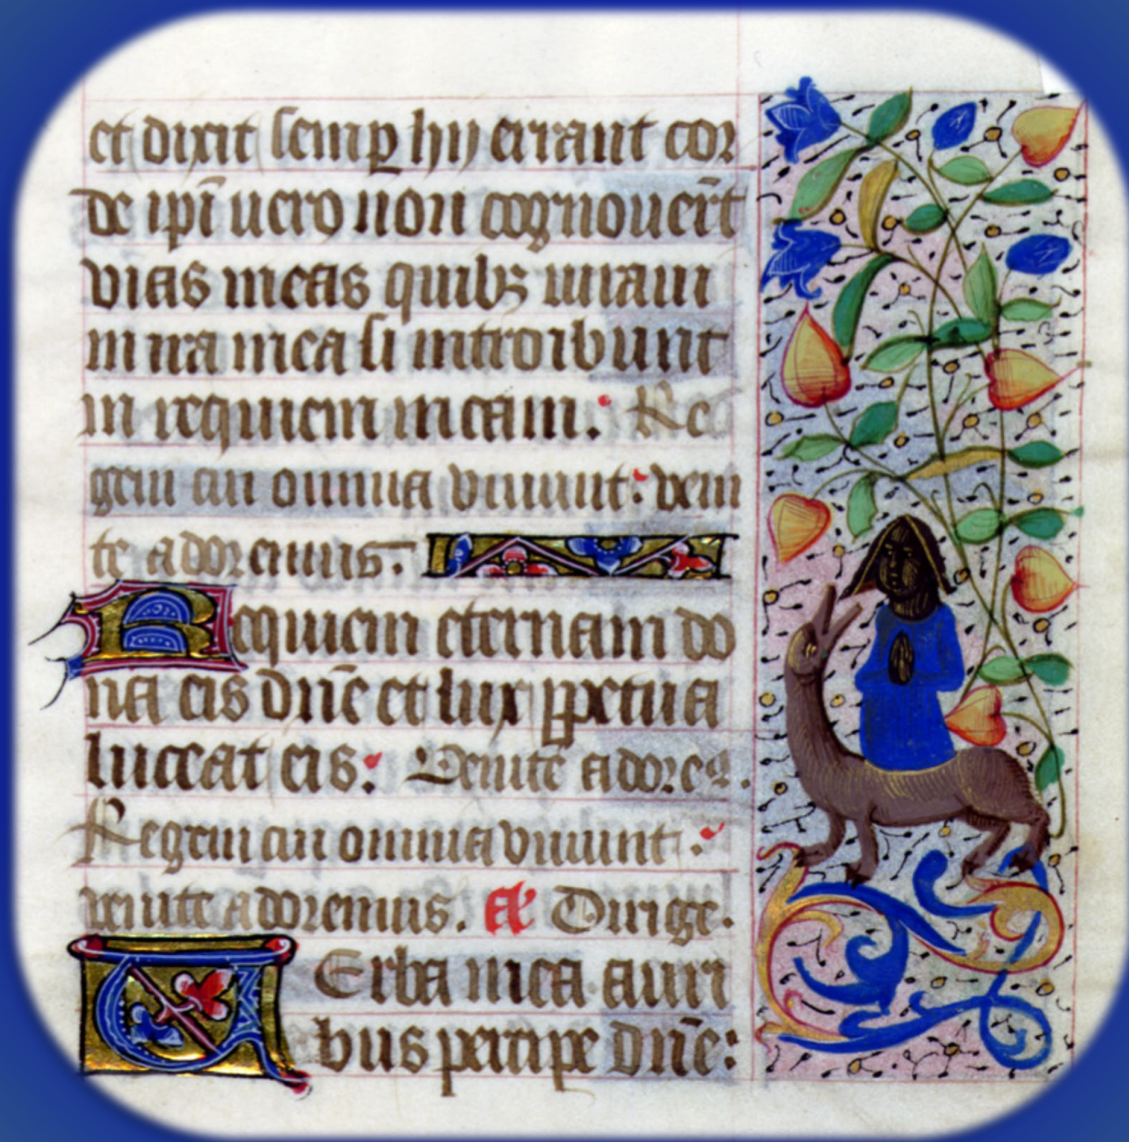 et dixit semp hij errant cor
de ipi uero non cognouert
vias meas quibz iuraui
in ira mea si introibunt
in requiem meam. Re
gem cui omnia viuunt: veni
te adoremus.
Requiem eternam do
na eis dne et lux ppetua
luceat eis: Venite adore9.
Regem cui omnia viuunt.
venite adoremus. A Dirige.
VErba mea auri
bus percipe dne: